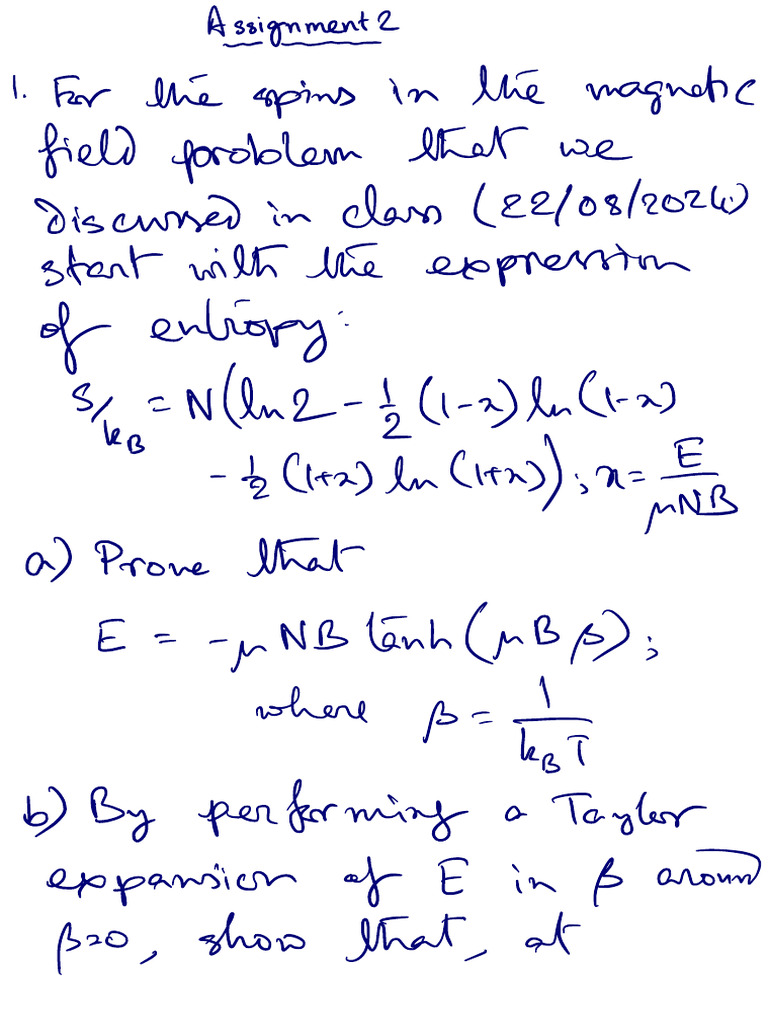 Assignment 2
1. For the spins in the magnetic
field problem that we
discussed in class (22/08/2024)
start with the expression
of entropy:
S/k_B = N(ln 2 - 1/2 (1-x) ln (1-x)
- 1/2 (1+x) ln (1+x)); x = E/μNB
a) Prove that
E = -μNB tanh(μBβ);
where β = 1/k_B T
b) By performing a Taylor
expansion of E in β around
β=0, show that, at